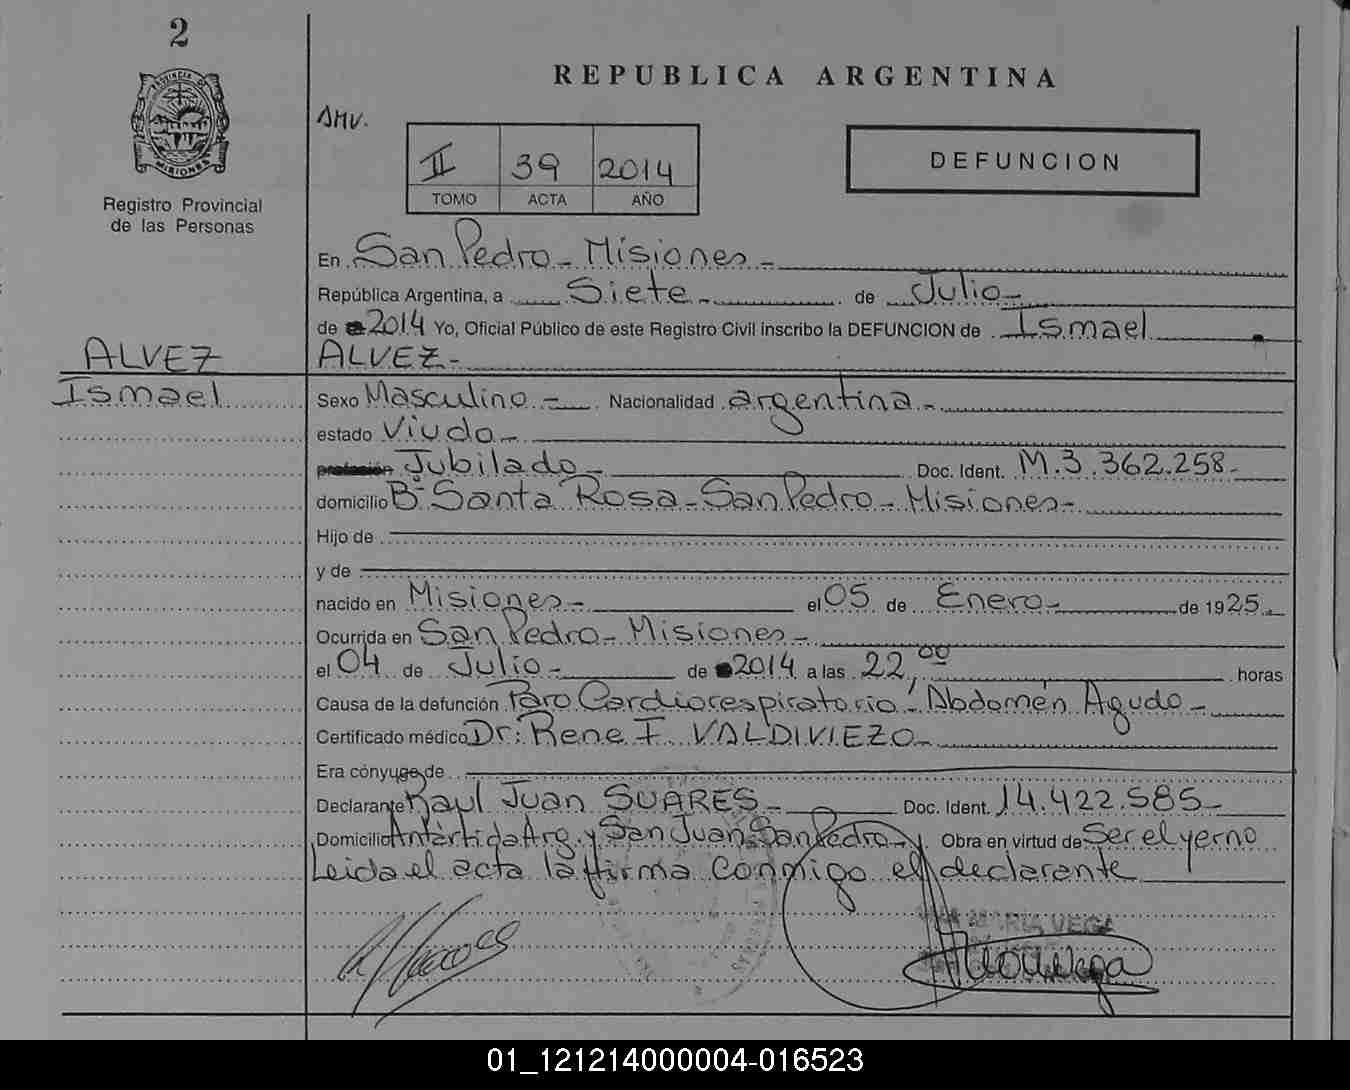 2
PROVINCIA DE
MISIONES
Registro Provincial
de las Personas
REPUBLICA ARGENTINA
AMV.
II 39 2014
TOMO ACTA AÑO
DEFUNCION
En San Pedro - Misiones -
República Argentina, a Siete - de Julio -
de 2014 Yo, Oficial Público de este Registro Civil inscribo la DEFUNCION de Ismael
ALVEZ ALVEZ -
Ismael Sexo Masculino - Nacionalidad argentina -
estado Viudo -
profesión Jubilado - Doc. Ident. M.3.362.258-
domicilio Bº Santa Rosa - San Pedro - Misiones -
Hijo de
y de
nacido en Misiones - el 05 de Enero - de 1925 -
Ocurrida en San Pedro - Misiones -
el 04 de Julio - de 2014 a las 22,00 horas
Causa de la defunción Paro Cardiorespiratorio - Abdomén Agudo -
Certificado médico Dr: Rene F. VALDIVIEZO -
Era cónyuge de
Declarante Raul Juan SUARES - Doc. Ident. 14.422.585-
Domicilio Antártida Arg. y San Juan San Pedro - Obra en virtud de Ser el yerno
Leida el acta la firma conmigo el declarante
MARIA VEGA
01_121214000004-016523